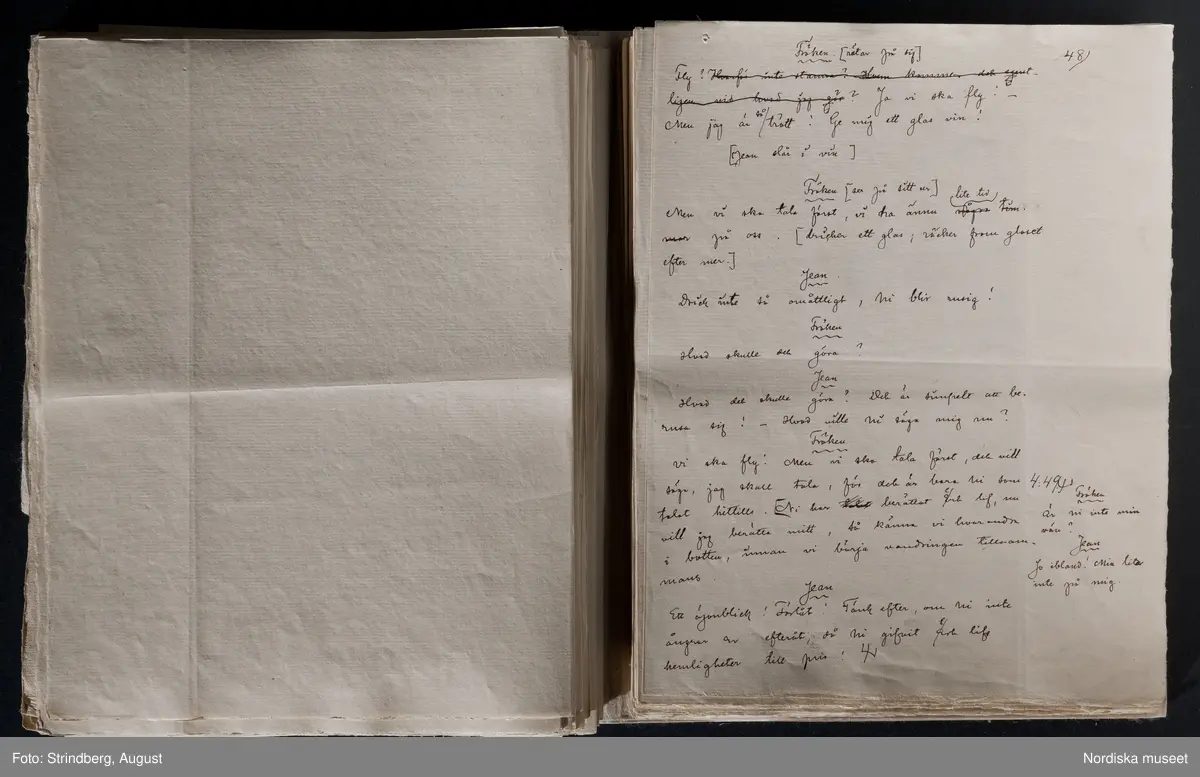 48)
Fröken [rätar på sig]
Fly! Hvarför inte stanna? Hvem kommer det egent-
ligen vid hvad jag gör? Ja vi ska fly! –
Men jag är så trött! Ge mig ett glas vin!
[Jean slår i vin]
Fröken [ser på sitt ur]
lite tid
Men vi ska tala först, vi ha ännu några tim-
mar på oss. [dricker ett glas; räcker fram glaset
efter mer.]
Jean.
Drick inte så omåttligt, Ni blir rusig!
Fröken
Hvad skulle det göra?
Jean
Hvad det skulle göra? Det är simpelt att be-
rusa sig! – Hvad ville Ni säga mig nu?
Fröken
Vi ska fly! Men vi ska tala först, det vill
säga, jag skall tala, för det är bara Ni som
talat hittills. Ni har talat berättat Ert lif, nu
vill jag berätta mitt, så känna vi hvarandra
i botten, innan vi börja vandringen tillsam-
mans.
Jean
Ett ögonblick! Förlåt! Tänk efter, om Ni inte
ångrar er efteråt, då Ni gifvit Ert lifs
hemligheter till pris!
4.49)
Fröken
Är ni inte min
vän?
Jean
Jo ibland! Men lita
inte på mig.
Foto: Strindberg, August
Nordiska museet